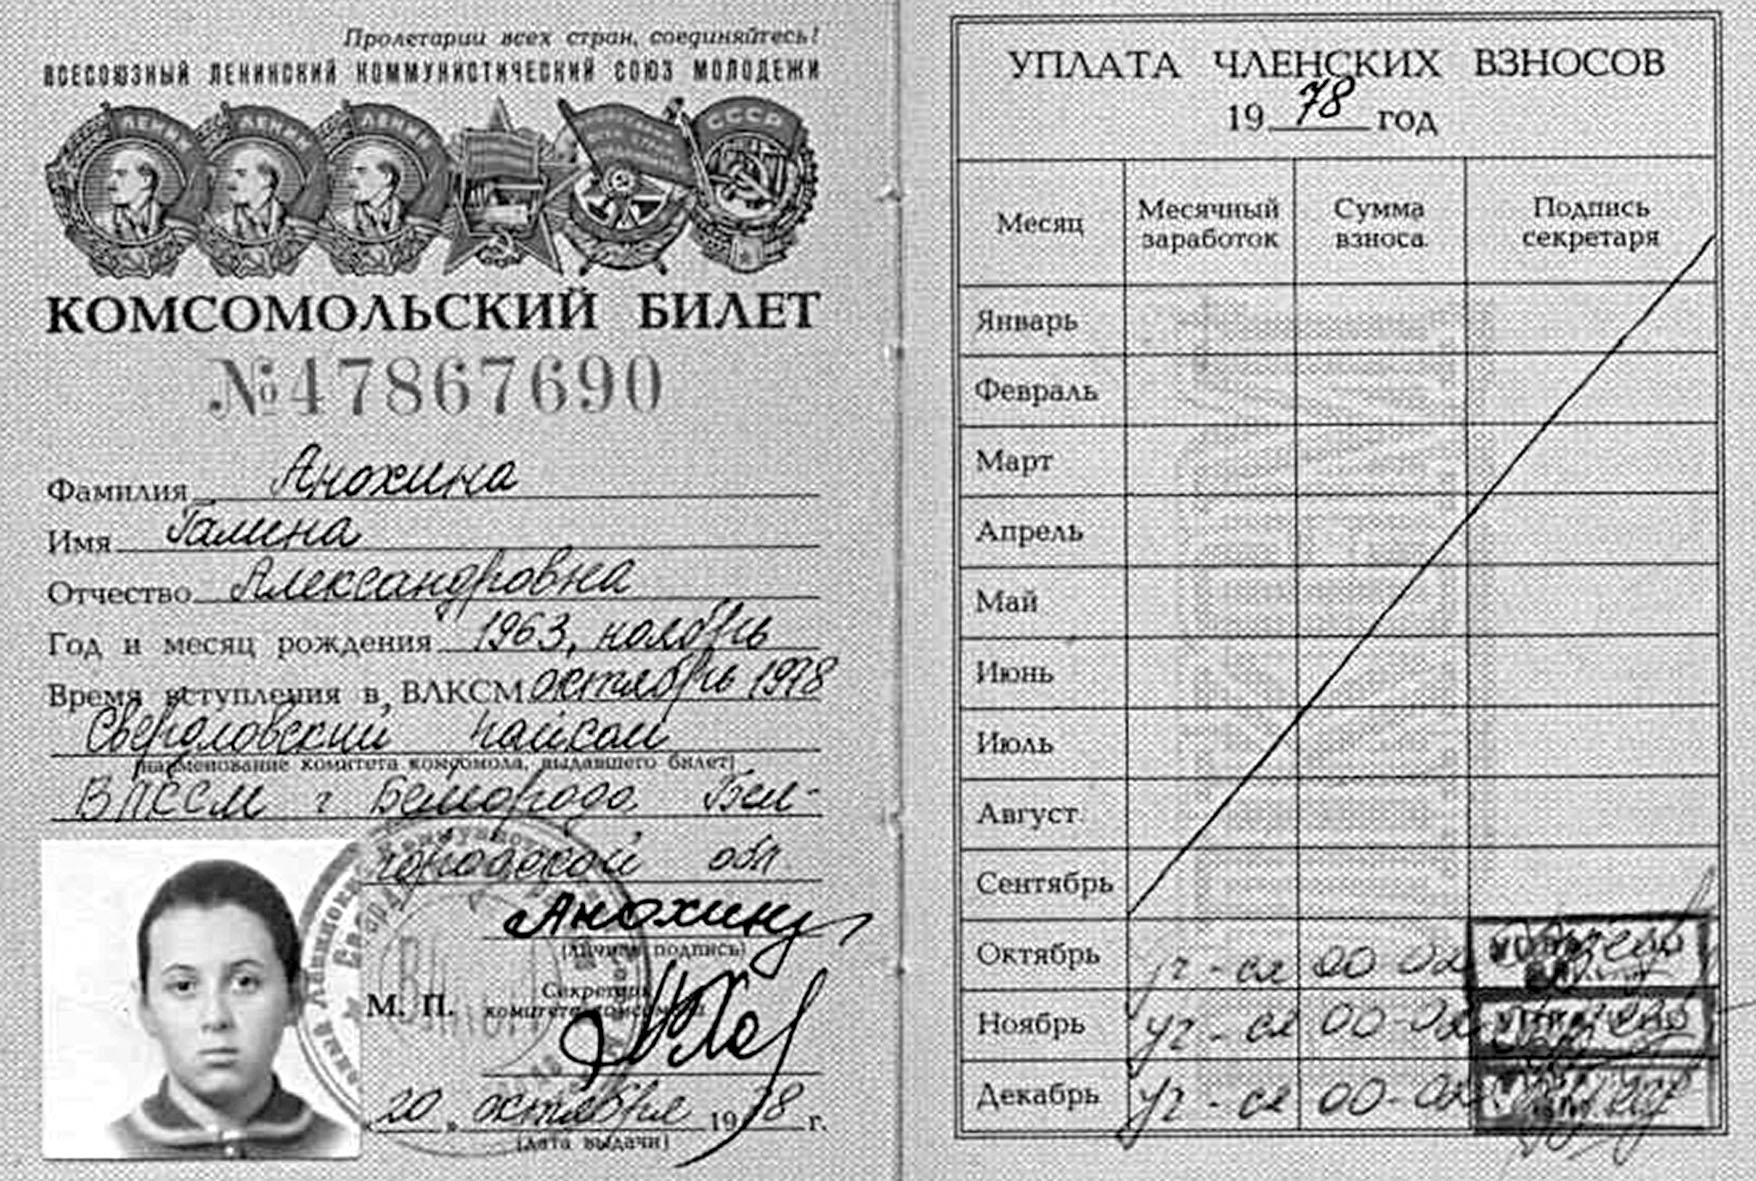 Пролетарии всех стран, соединяйтесь!
ВСЕСОЮЗНЫЙ ЛЕНИНСКИЙ КОММУНИСТИЧЕСКИЙ СОЮЗ МОЛОДЕЖИ
ЛЕНИН ЛЕНИН ЛЕНИН СССР
КОМСОМОЛЬСКИЙ БИЛЕТ
№47867690
Фамилия Анохина
Имя Галина
Отчество Александровна
Год и месяц рождения 1963, ноябрь
Время вступления в ВЛКСМ октябрь 1978
Свердловский райком
(наименование комитета комсомола, выдавшего билет)
ВЛКСМ г Белгорода Бел-
городской обл
(личная подпись)
М. П. Секретарь
комитета комсомола
"20" октября 1978 г.
(дата выдачи)
УПЛАТА ЧЛЕНСКИХ ВЗНОСОВ
1978 год
Месяц Месячный заработок Сумма взноса Подпись секретаря
Январь
Февраль
Март
Апрель
Май
Июнь
Июль
Август
Сентябрь
Октябрь уч-ся 00-02
Ноябрь уч-ся 00-02
Декабрь уч-ся 00-02